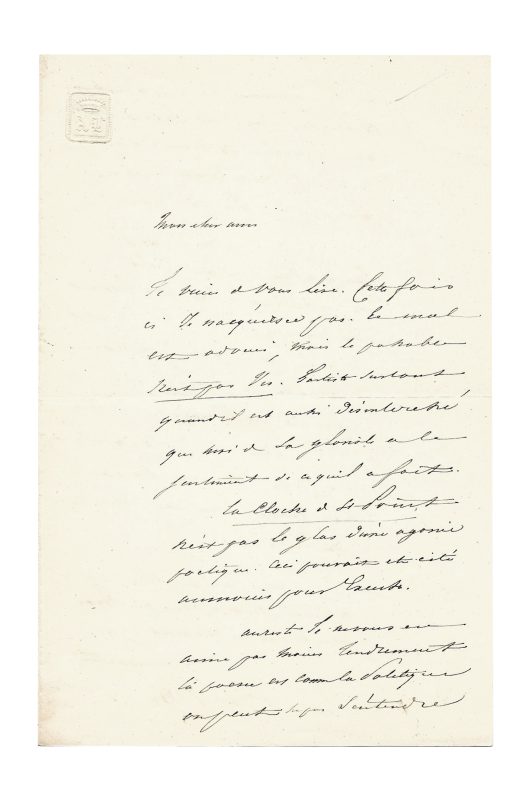 Mon cher ami
Je viens de vous lire. Cette fois
ci Je n'acquiesce pas. Le mal
est adouci, mais le
n'est pas Vrai. L'artiste surtout
quand il est aussi Désintéressé
que moi de sa gloriole a le
sentiment de ce qu'il a fait.
La Cloche de St Point
n'est pas le glas d'une agonie
poétique. Ceci pouvait être cité
au moins pour Excuse.
au reste Je ne vous en
aime pas moins tendrement
la poésie est comme la Politique
on peut ne pas S'entendre